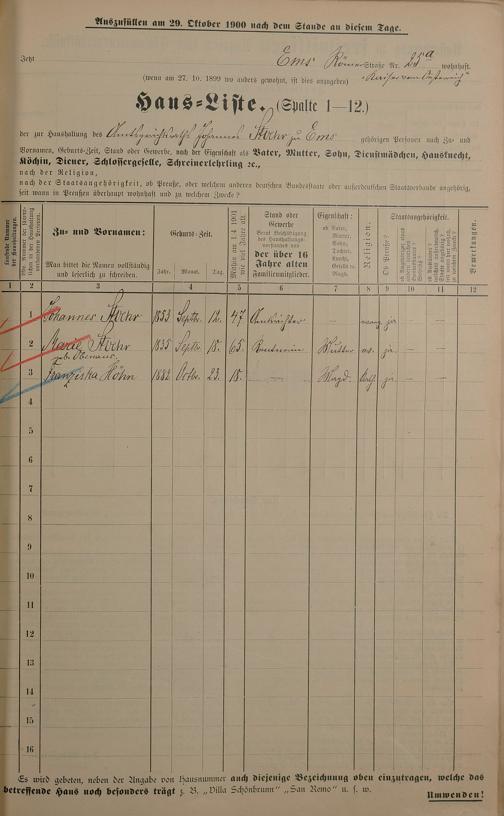 Auszufüllen am 29. Oktober 1900 nach dem Stande an diesem Tage.
Jetzt Ems Römer Straße Nr. 25a wohnhaft.
(wenn am 27. 10. 1899 wo anders gewohnt, ist dies anzugeben) "Kaiser von Österreich"
Haus-Liste. (Spalte 1—12.)
der zur Haushaltung des Amtsgerichtsraths Johannes zu Ems gehörigen Personen nach Zu- und
Vornamen, Geburts-Zeit, Stand oder Gewerbe, nach der Eigenschaft als Vater, Mutter, Sohn, Dienstmädchen, Hausknecht,
Köchin, Diener, Schlossergeselle, Schreinerlehrling ꝛc.,
nach der Religion,
nach der Staatsangehörigkeit, ob Preuße, oder welchem anderen deutschen Bundesstaate oder außerdeutschen Staatsverbande angehörig,
seit wann in Preußen überhaupt wohnhaft und zu welchem Zwecke?
Zu- und Vornamen:
Man bittet die Namen vollständig und leserlich zu schreiben.
Geburts-Zeit.
Jahr. Monat. Tag.
Mithin am 1.4.1901 wie viel Jahre alt.
Stand oder Gewerbe
der über 16 Jahre alten Familienmitglieder.
Eigenschaft:
ob Vater, Mutter, Sohn, Tochter,
Religion.
Staatsangehörigkeit.
Ob Preuße?
Bemerkungen.
1 2 3 4 5 6 7 8 9 10 11 12
1 Johannes 1853 Septbr. 12. 47 Amtsrichter — evang. ja — —
2 Marie 1835 Septbr. 18. 65. Rentnerin Mutter ev. ja — —
geb.
3 Franziska Höhn 1882 Octbr. 23. 18. — Magd. kath. ja — —
4
5
6
7
8
9
10
11
12
13
14
15
16
Es wird gebeten, neben der Angabe von Hausnummer auch diejenige Bezeichnung oben einzutragen, welche das
betreffende Haus noch besonders trägt z. B. „Villa Schönbrunn" „San Remo" u. s. w.
Umwenden!